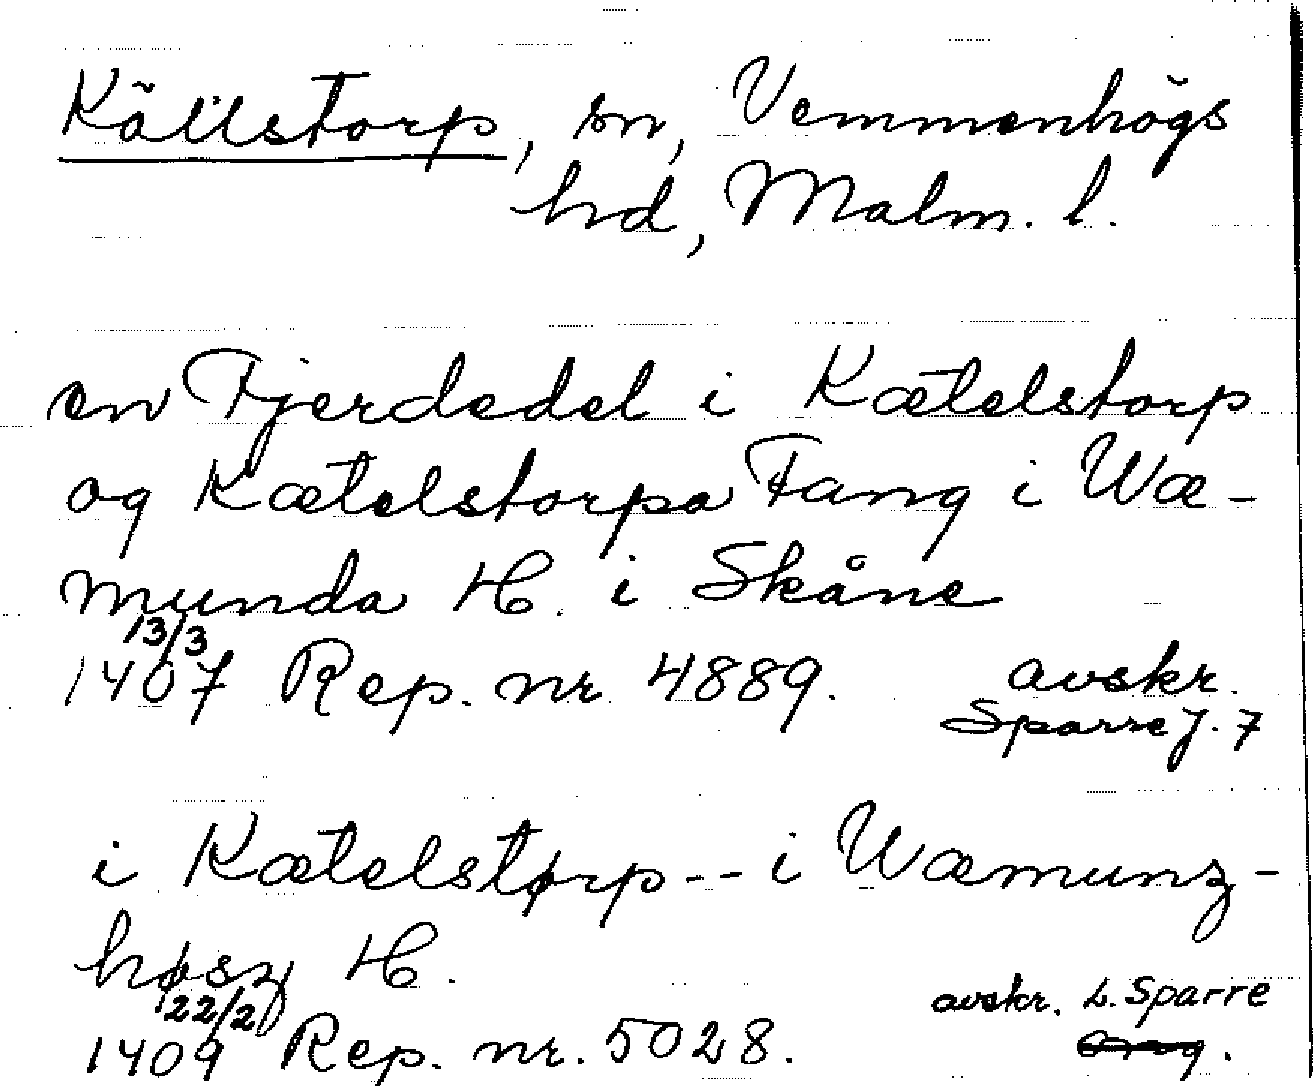 Källstorp, sn, Vemmenhögs
hd, Malm. l.
en Fjerdedel i Kætelstorp
og Kætelstorpa Fang i Wæ-
munda H. i Skåne
13/3
1407 Rep. nr 4889. avskr.
Sparre J. 7
i Kætelstørp -- i Wæmunz-
høsz H.
22/2 avskr. L. Sparre
1409 Rep. nr. 5028.